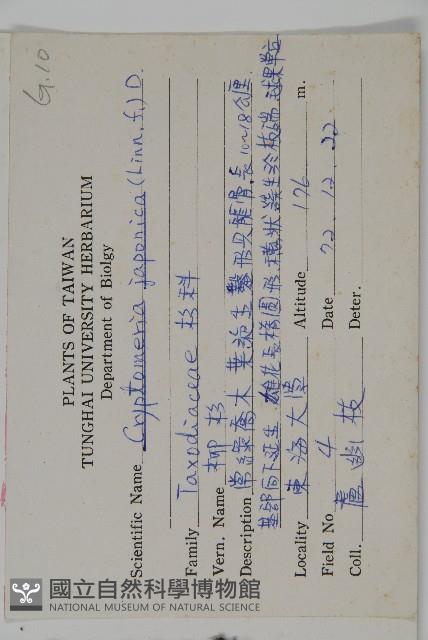 G.10
PLANTS OF TAIWAN
TUNGHAI UNIVERSITY HERBARIUM
Department of Biolgy
Scientific Name Cryptomeria japonica (Linn. f.) D.
Family Taxodiaceae 杉科
Vern. Name 柳杉
Description 常綠喬木 葉旋生 形 長10~18公厘
基部向下延生 雄花長橢圓形 穗狀 生於枝端 球果
Locality 東海大學 Altitude 176 m.
Field No 4 Date 72.12.22
Coll. 盧 枝 Deter.
國立自然科學博物館
NATIONAL MUSEUM OF NATURAL SCIENCE